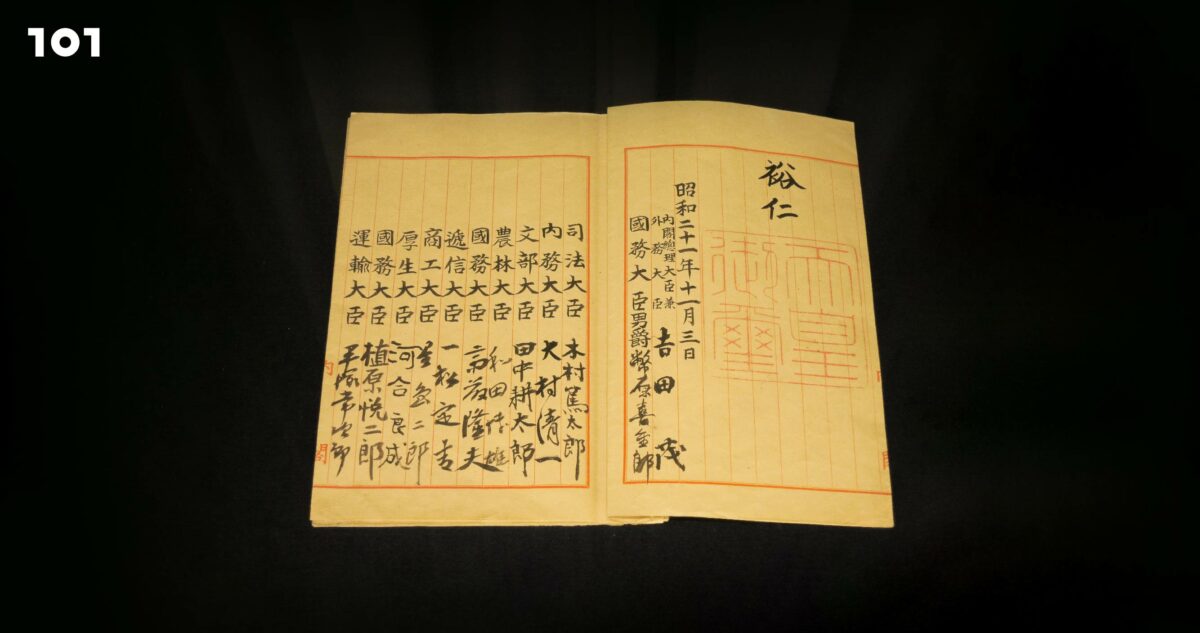 101
裕仁
天皇
御璽
昭和二十一年十一月三日
内閣總理大臣兼
外務大臣 吉田茂
國務大臣男爵幣原喜重郎
司法大臣 木村篤太郎
内務大臣 大村清一
文部大臣 田中耕太郎
農林大臣 和田博雄
國務大臣 斎藤隆夫
遞信大臣 一松定吉
商工大臣 星島二郎
厚生大臣 河合良成
國務大臣 植原悦二郎
運輸大臣 平塚常次郎